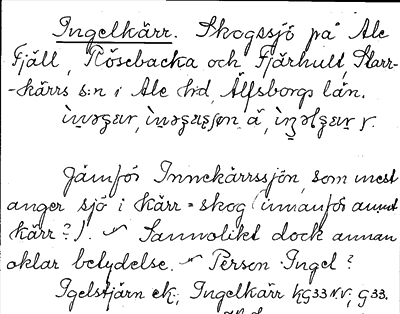 Ingelkärr. Skogssjö på Ale
Fjäll, Nösebacka och Fjärhult, Starr-
-kärrs s:n i Ale hd, Älfsborgs län.
Jämför Innekärrssjön, som mest
anger sjö i kärr = skog (innanför annat
kärr?). Sannolikt dock annan
oklar betydelse. Person Ingel?
Igelstjärn ek; Ingelkärr kG33 N.V; G33.